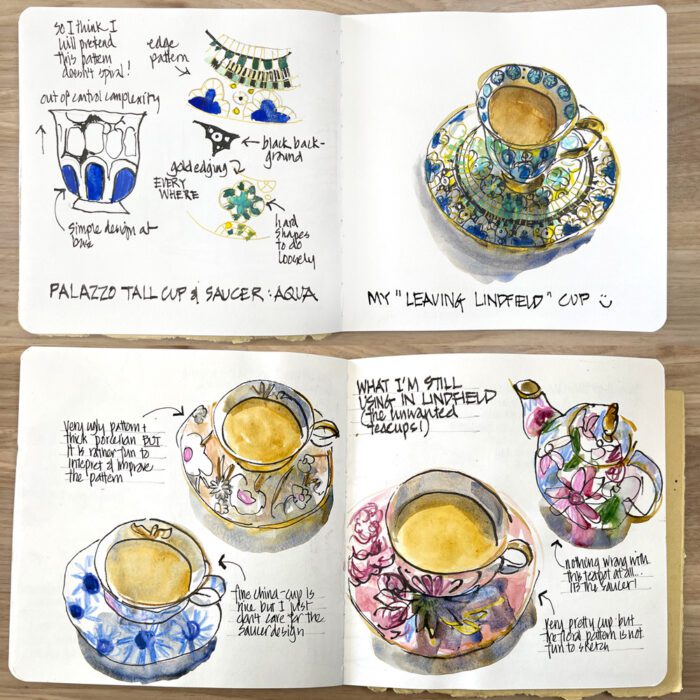 so I think I
will pretend
this pattern
doesn't spiral!
edge
pattern
out of control complexity
black back-
ground
gold edging
EVERY
WHERE
simple design at
base
hard
shapes
to do
loosely
PALAZZO TALL CUP & SAUCER : AQUA
MY "LEAVING LINDFIELD" CUP
very ugly pattern +
thick porcelian BUT
it is rather fun to
interpret & improve
the pattern
fine china - cup is
nice but I just
don't care for the
saucer design
WHAT I'M STILL
USING IN LINDFIELD
(the unwanted
teacups!)
nothing wrong with
this teapot at all...
the saucer!
very pretty cup but
the floral pattern is not
fun to sketch